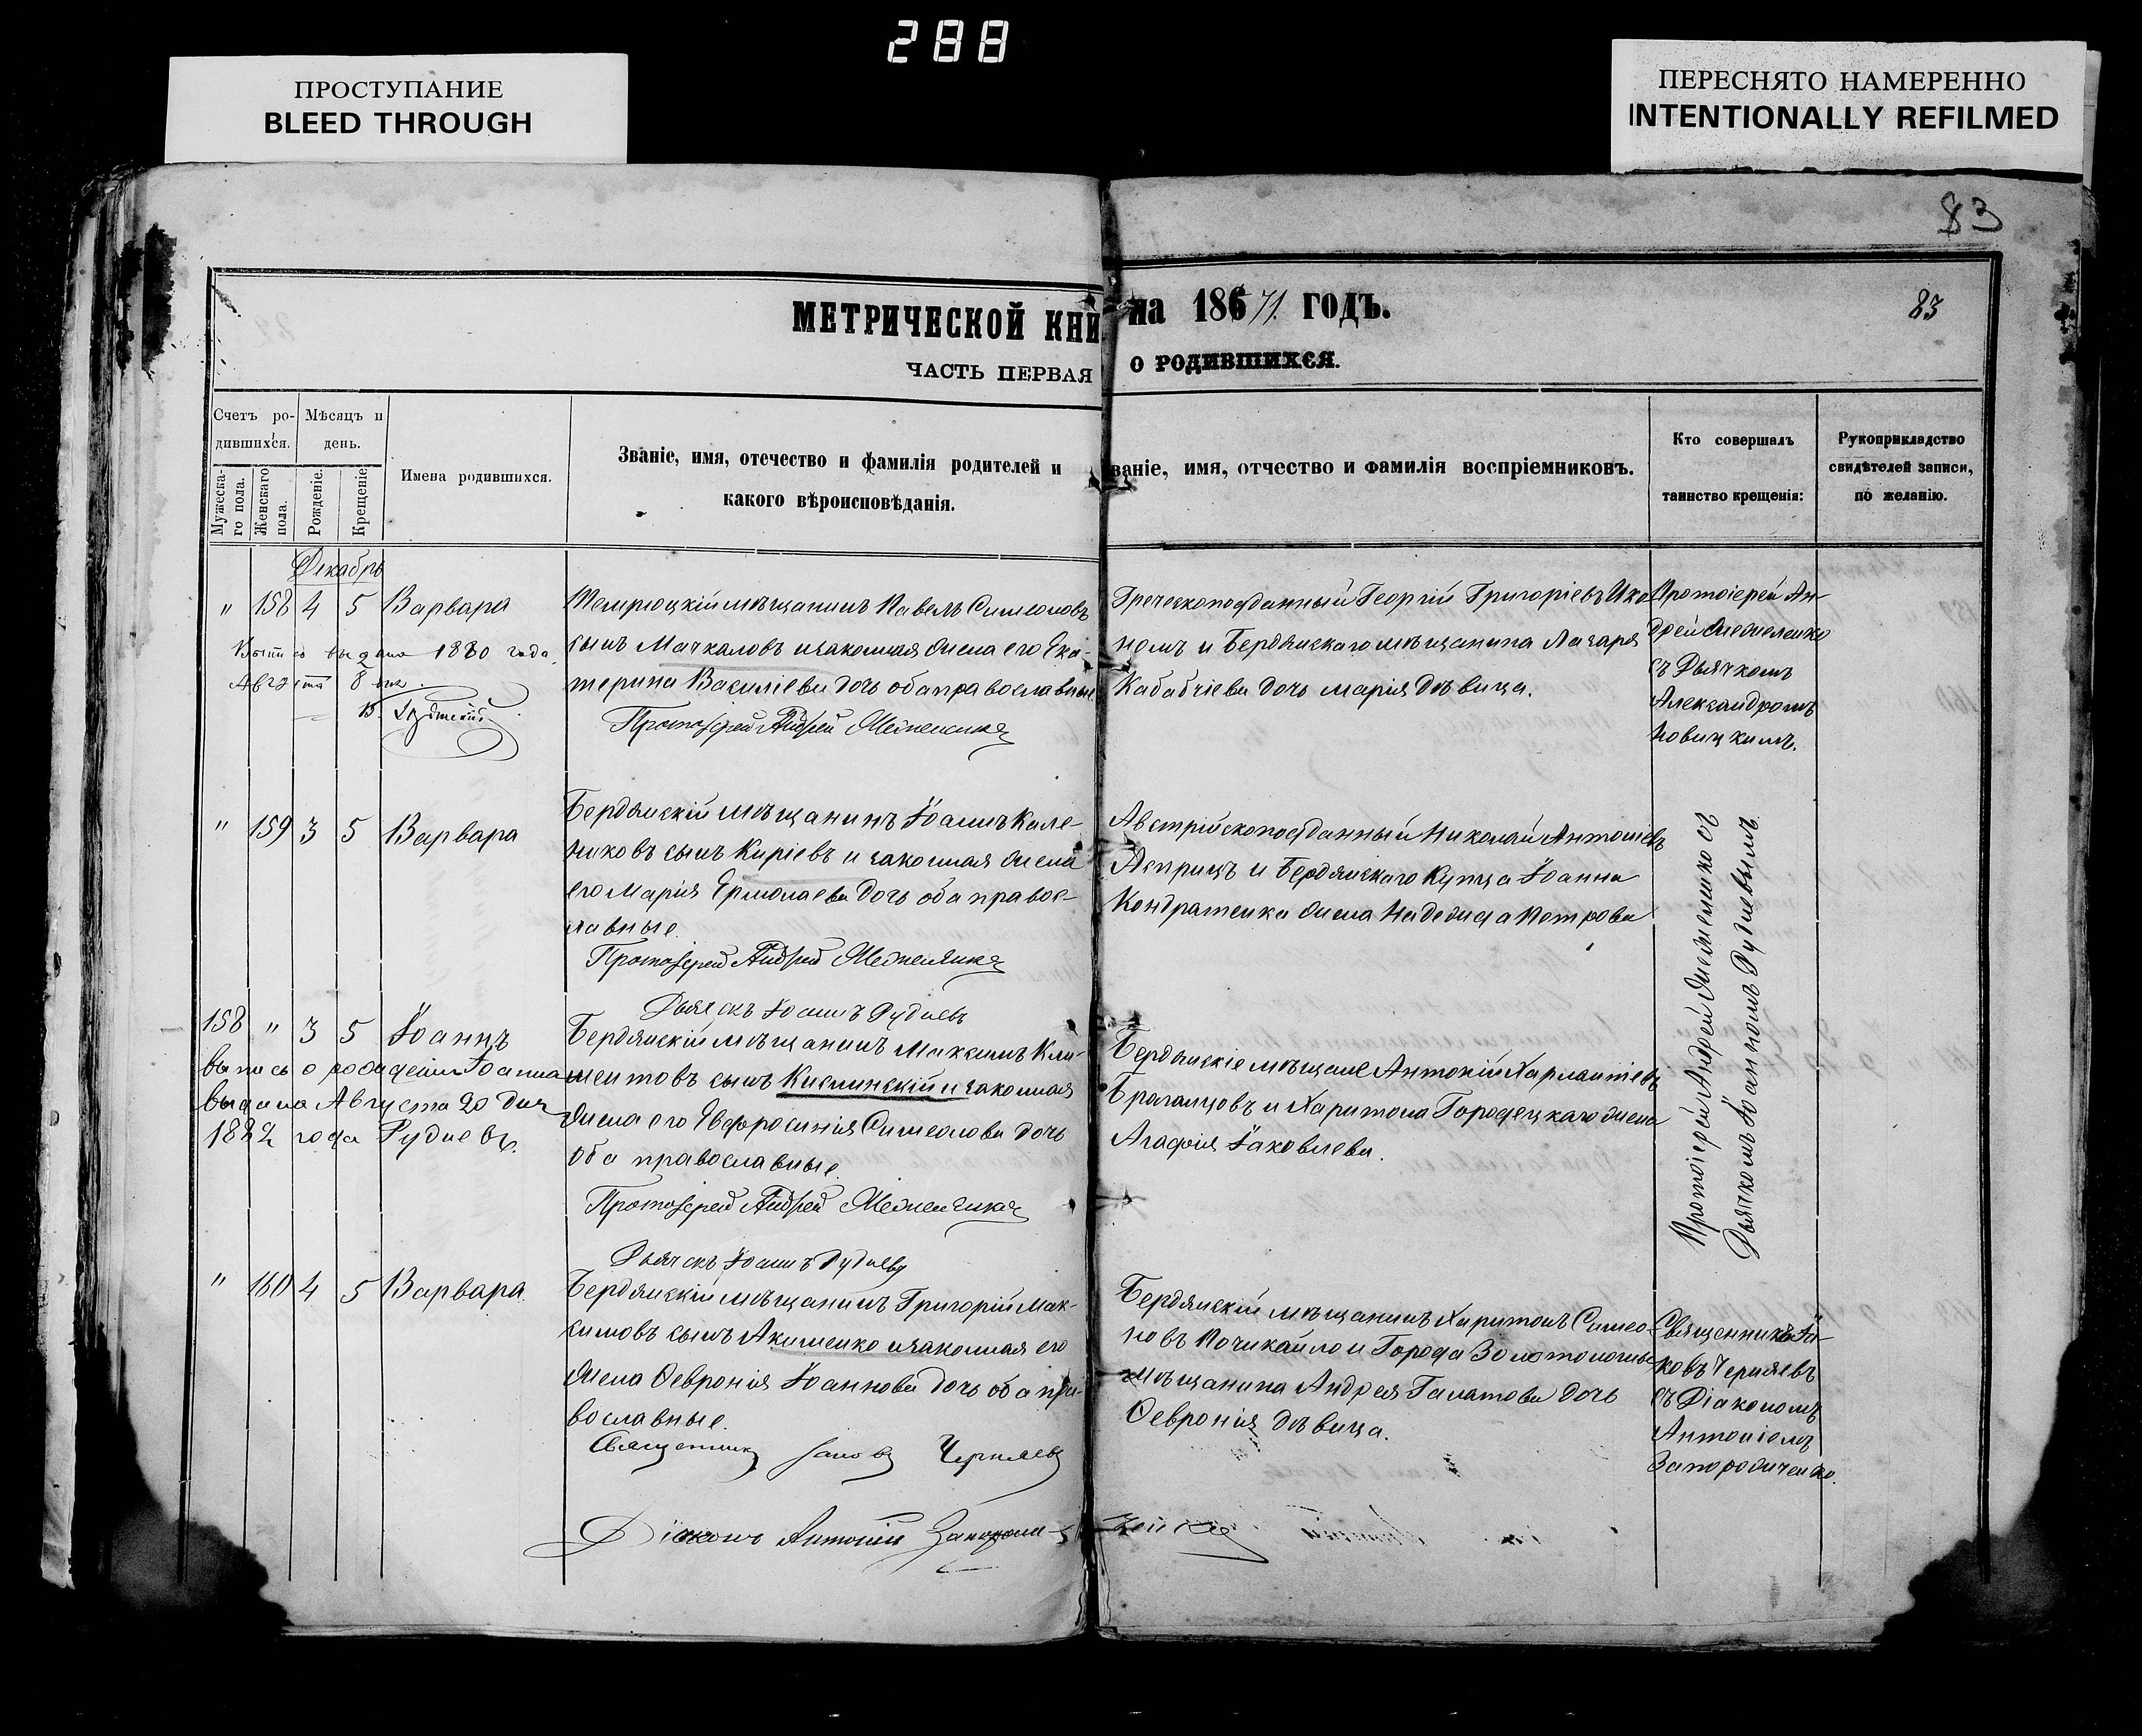 288
ПРОСТУПАНИЕ
BLEED THROUGH
ПЕРЕСНЯТО НАМЕРЕННО
INTENTIONALLY REFILMED
83
МЕТРИЧЕСКОЙ КНИ на 18671. ГОДЪ.
83
ЧАСТЬ ПЕРВАЯ О РОДИВШИХСЯ.
Счетъ ро-
дившихся.
Мужеска-
го пола.
Женскаго
пола.
Мѣсяцъ и
день.
Рожденіе.
Крещеніе
Имена родившихся.
Званіе, имя, отечество и фамилія родителей и
какого вѣроисповѣданія.
ваніе, имя, отчество и фамилія воспріемниковъ.
Кто совершалъ
таинство крещенія:
Рукоприкладство
свидѣтелей записи,
по желанію.
Декабрь
" 158 4 5 Варвара
выдана 1880 года
Августа 8 дня
Темрюцкій мѣщанинъ Павелъ Симеоновъ
сынъ Мачкаловъ и законная жена его Ека-
терина Василіева дочь оба православные
Протоіерей Андрей Меженко
Греческоподданный Георгій Григоріевъ Ико
номъ и Бердянскаго мѣщанина Лазаря
Кабабчіева дочь Марія дѣвица.
Протоіерей Ан-
дрей
съ Дьячкомъ
Александромъ
Новицкимъ.
" 159 3 5 Варвара
Бердянскій мѣщанинъ Іоаннъ Кале-
никовъ сынъ Киріевъ и законная жена
его Марія Ермолаева дочь оба правос-
лавные
Протоіерей Андрей
Дьячекъ Іоаннъ Рудневъ
Австрійскоподданный Николай Антоніевъ
и Бердянскаго Купца Іоанна
Кондратенка жена Надежда Петрова
Протоіерей Андрей съ
Дьячкомъ Іоанномъ Рудневымъ
158 " 3 5 Іоаннъ
выпись о рожденіи Іоанна
выдана Августа 20 дня
1882 года Рудневъ.
Бердянскій мѣщанинъ Максимъ Кли-
ментовъ сынъ Кислинскій и законная
жена его Евфросинія Симеонова дочь
оба православные
Протоіерей Андрей
Дьячекъ Іоаннъ Рудневъ
Бердянскіе мѣщане Антоній Харлантіевъ
Браганцовъ и Харитона Городецкаго жена
Агафія Іаковлева.
" 160 4 5 Варвара
Бердянскій мѣщанинъ Григорій Мак-
симовъ сынъ Акименко и законная его
жена Февронія Іоаннова дочь оба пра-
вославные.
Священникъ Іаковъ Черняевъ
Діаконъ Антоній
Бердянскій мѣщанинъ Харитонъ Симео-
новъ Почикайло и Города Золотоноши
мѣщанина Андрея Галатова дочь
Февронія дѣвица.
Священникъ Іа-
ковъ Черняевъ
съ Діакономъ
Антоніемъ